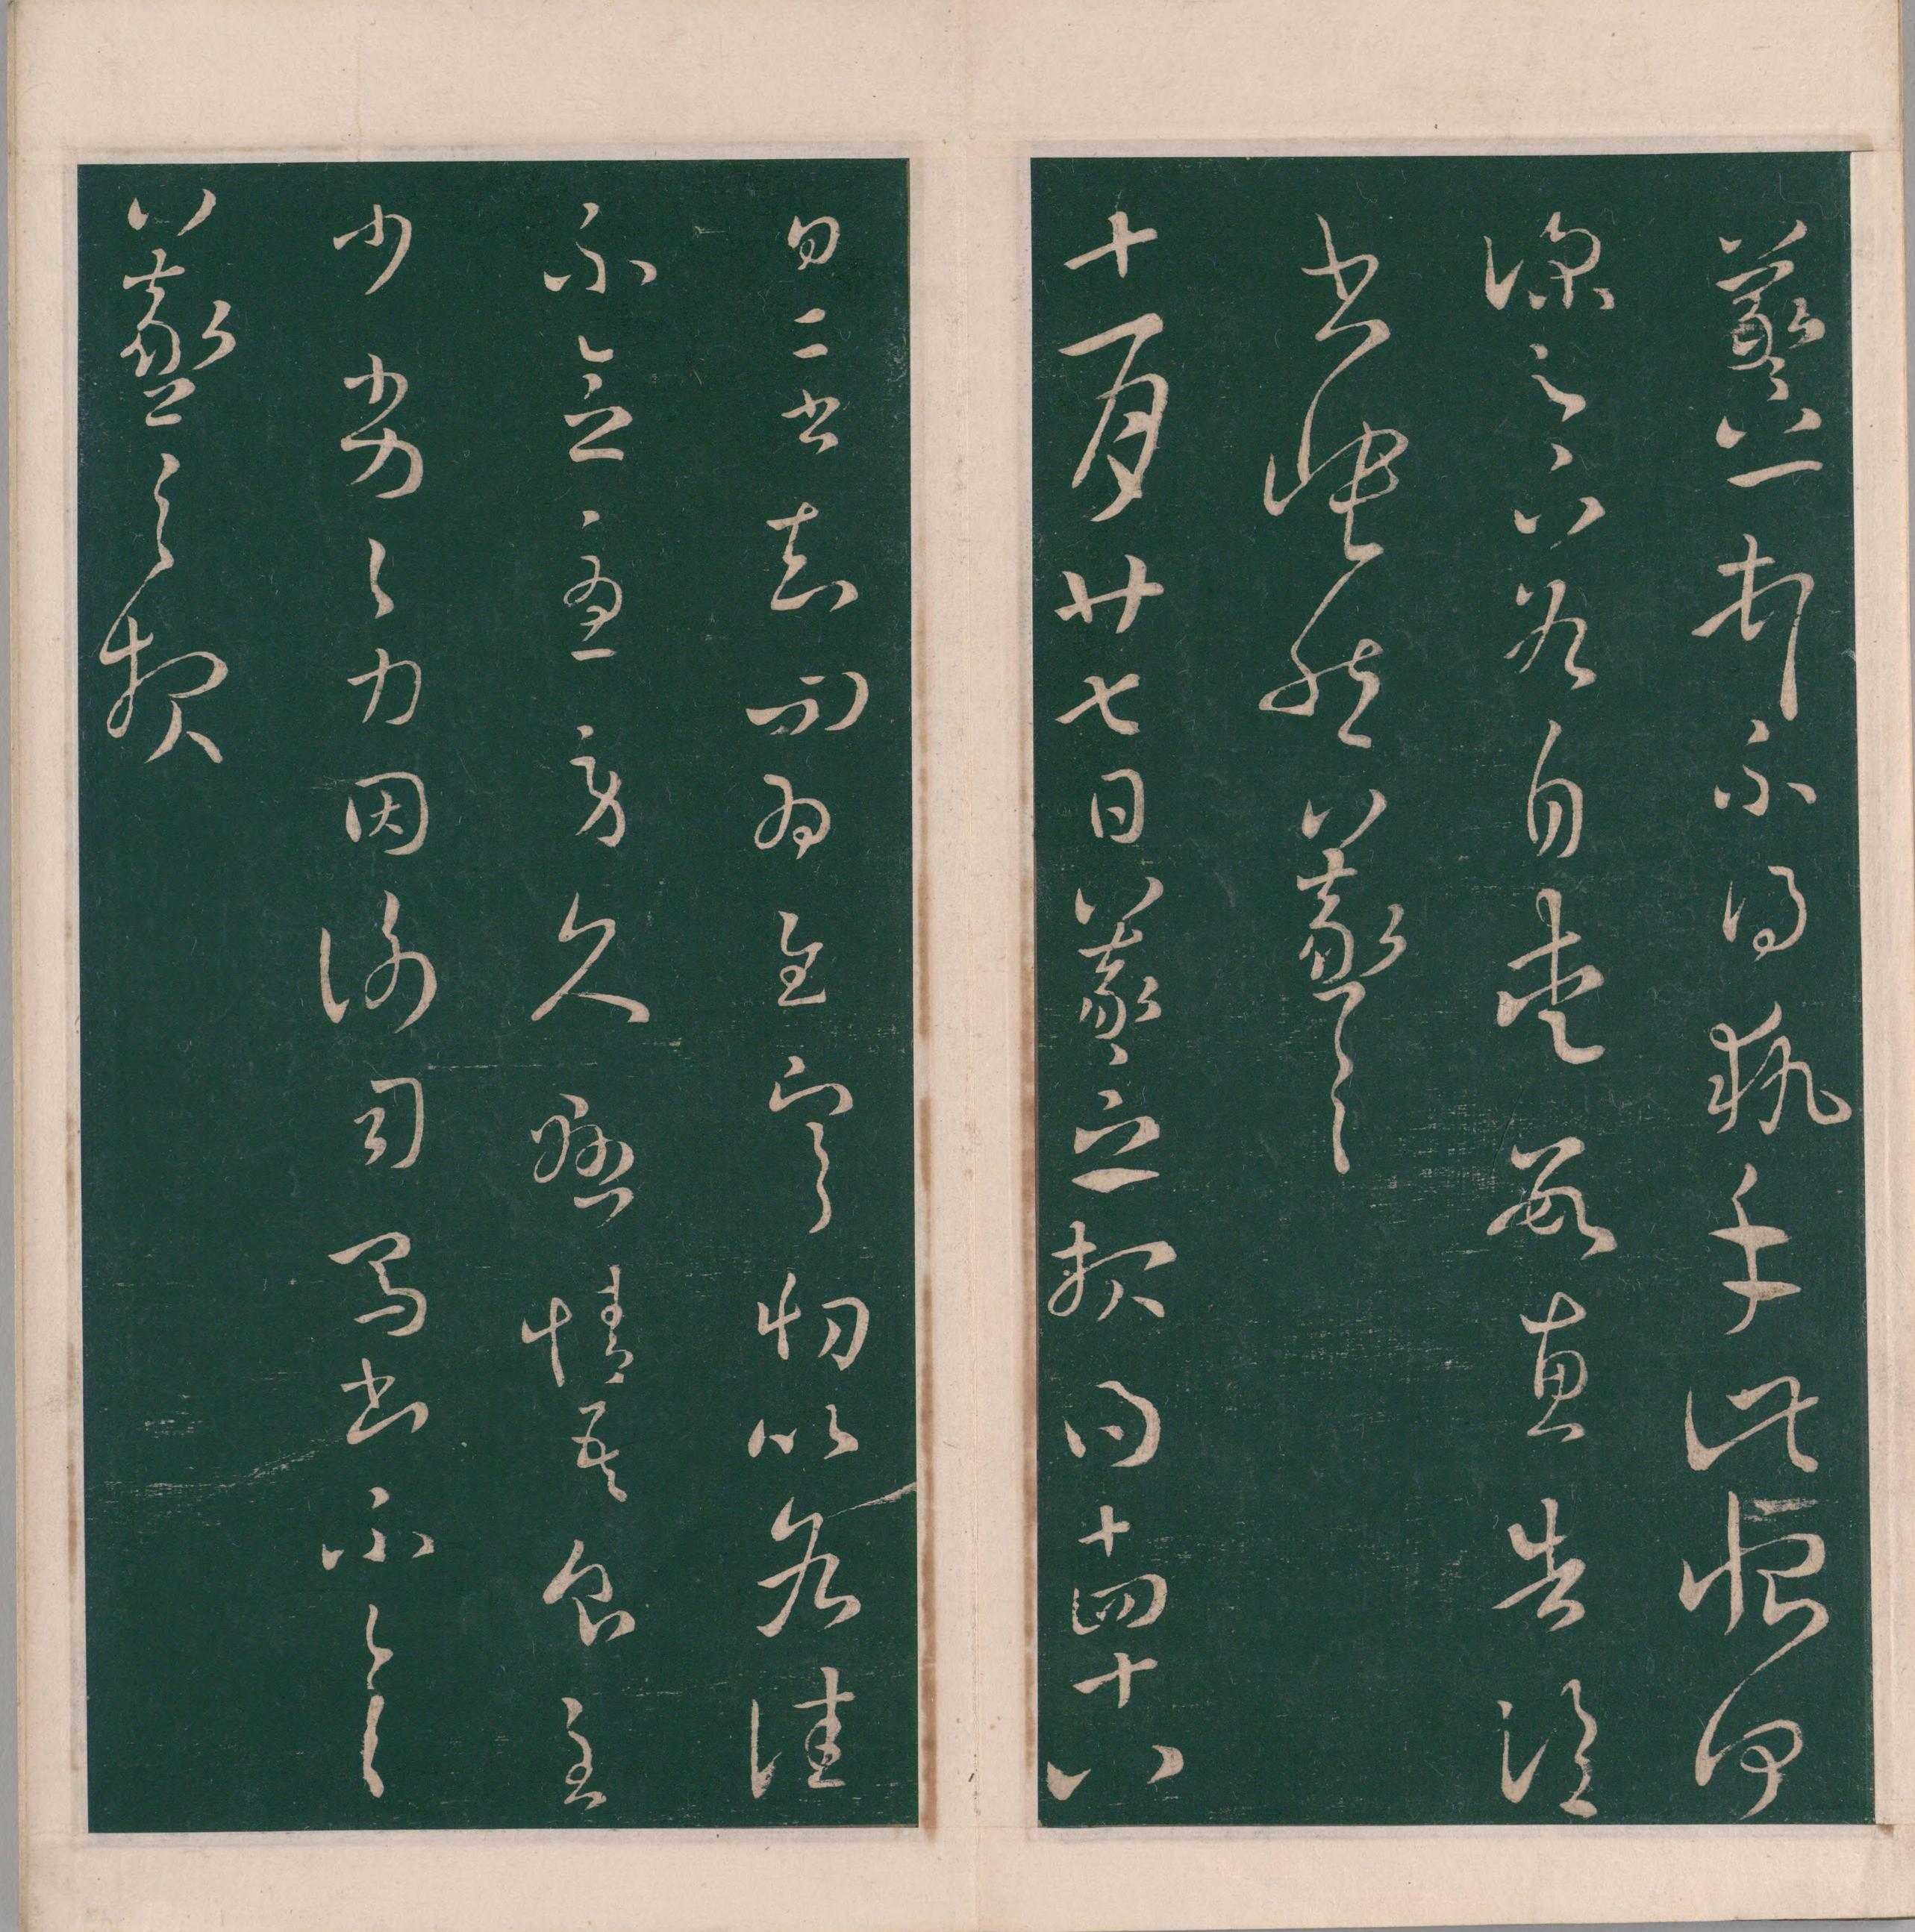 羲之不得執手此恨何
深足下各自愛數惠告臨
書悵然羲之
十一月廿七日羲之報得十四十八
日二書知問為慰寒切比各佳
不念憂勞久懸情吾食至
少劣劣力因謝司馬書不一一
羲之報